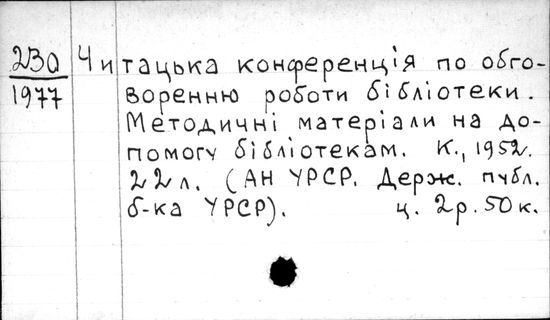 230 Читацька конференція по обго-
1977 воренню роботи бібліотеки.
Методичні матеріали на до-
помогу бібліотекам. К., 1952.
22 л. (АН УРСР. Держ. публ.
б-ка УРСР). ц. 2 р. 50 к.